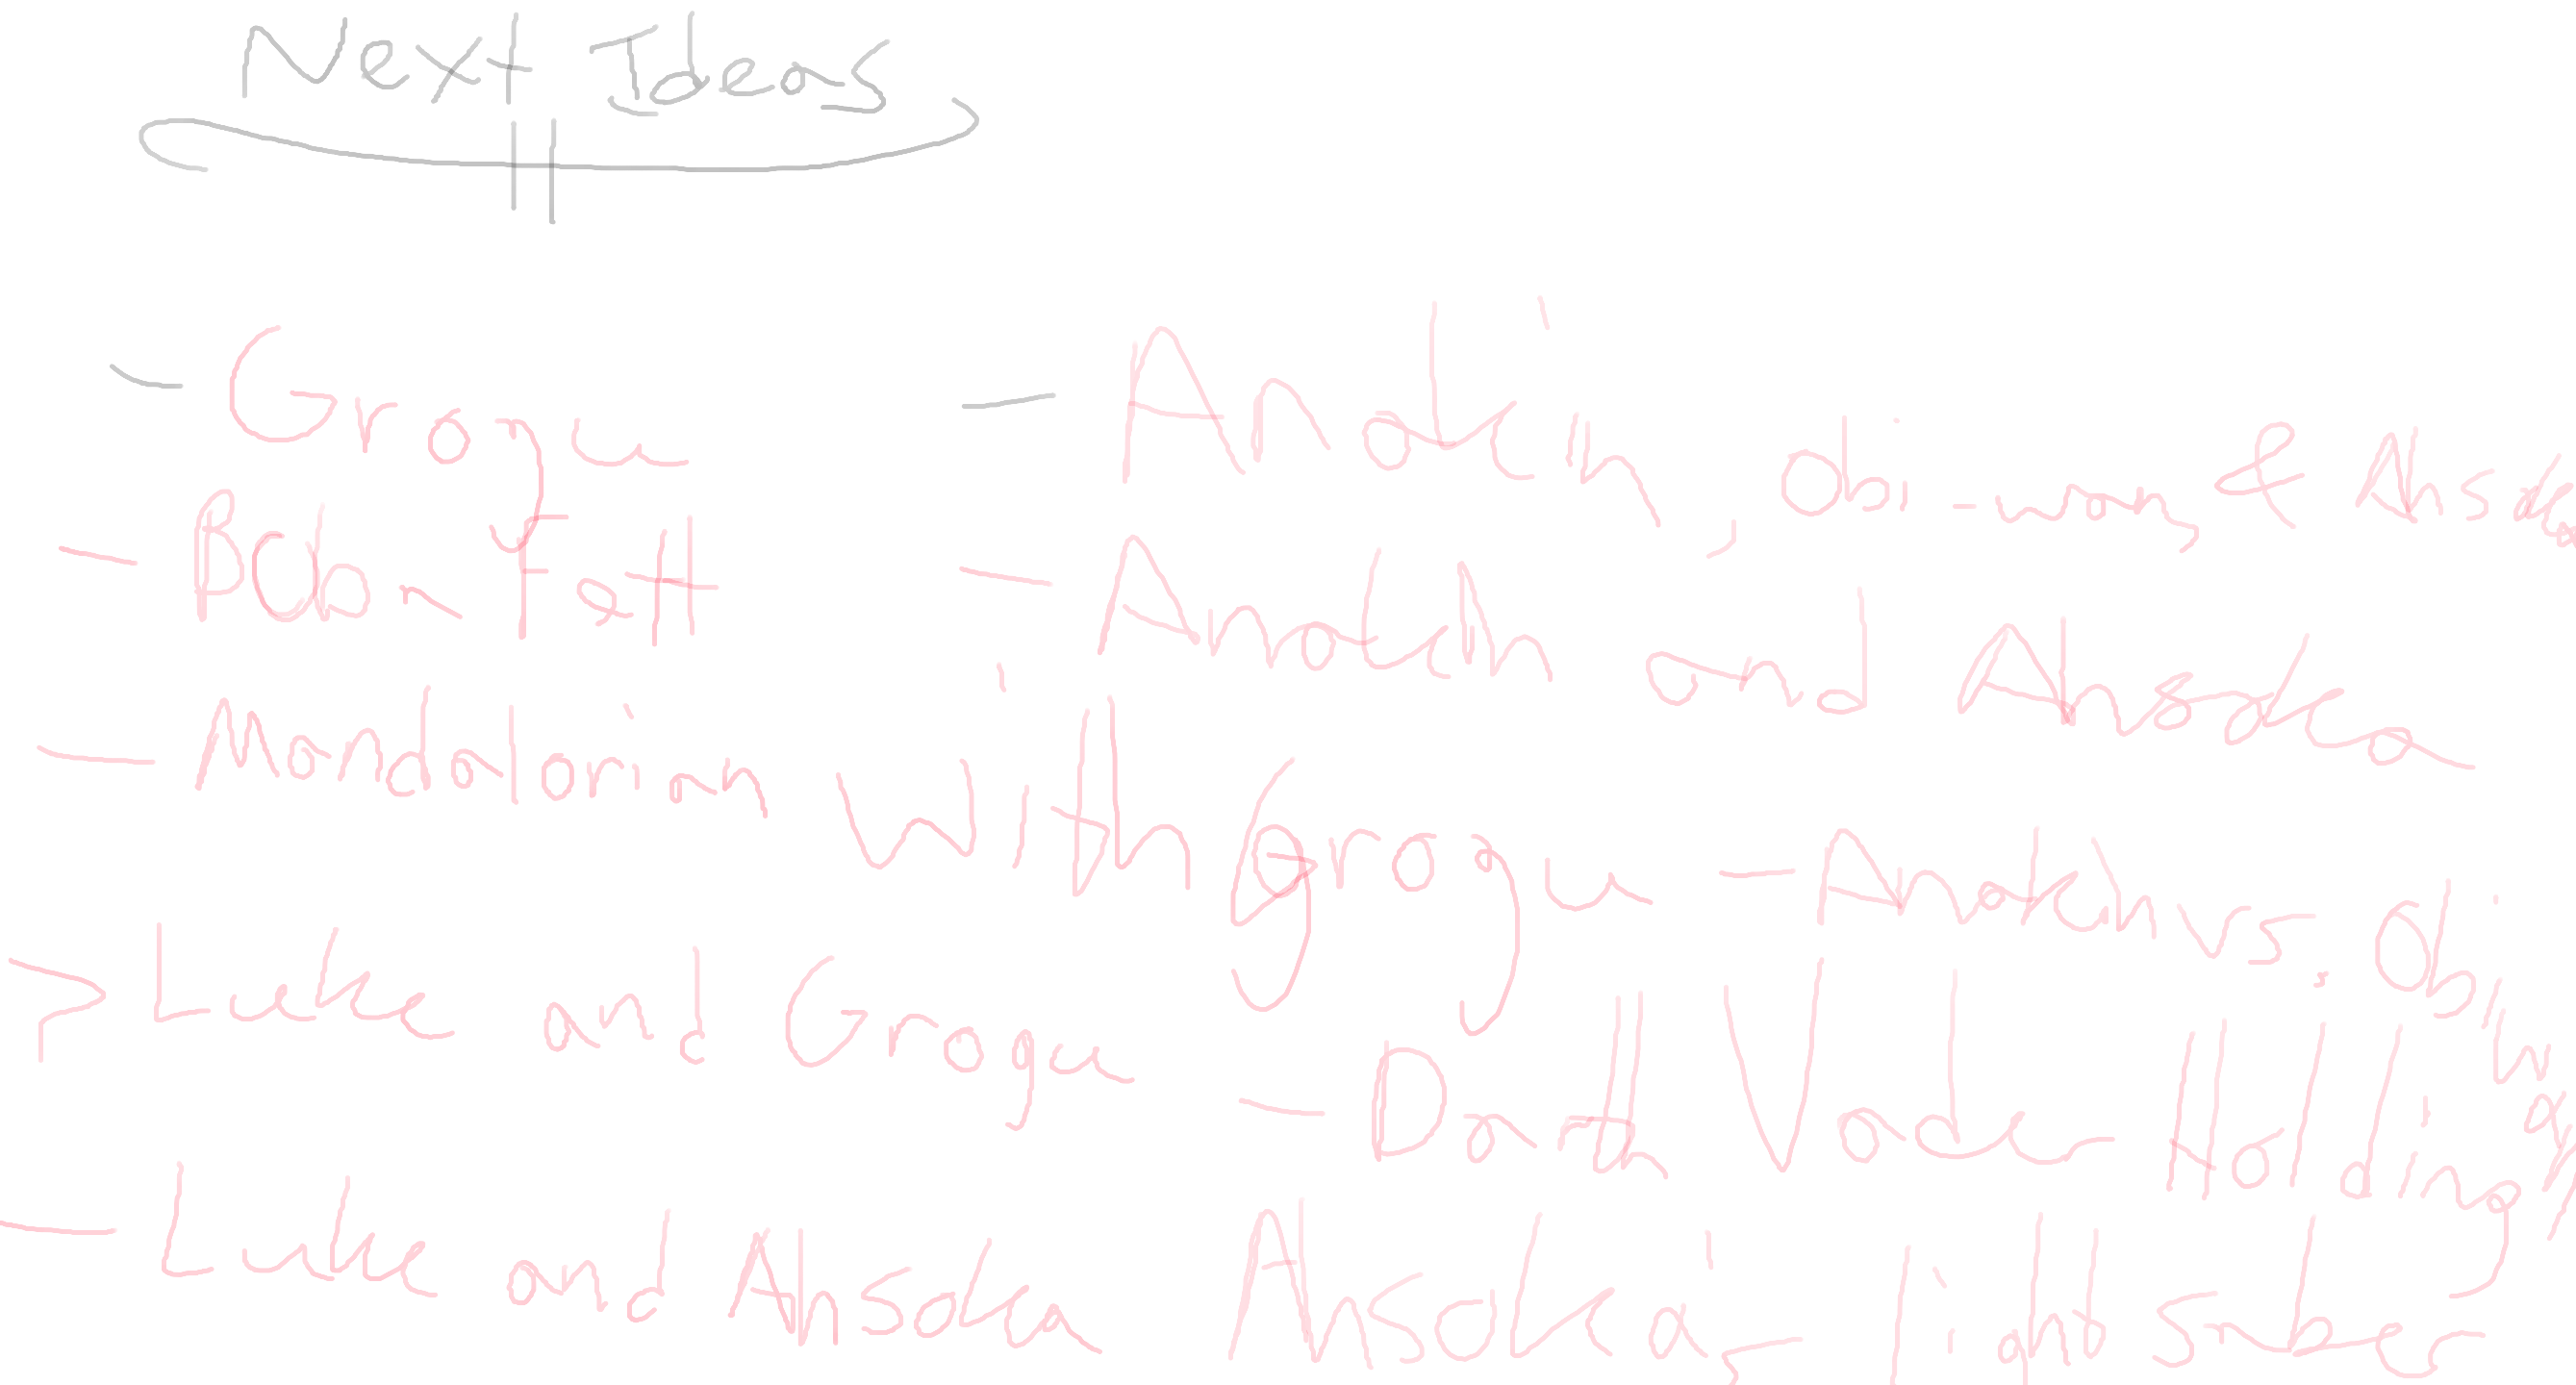 Next Ideas
- Grogu
- Boba Fett
- Mandalorian with grogu
> Luke and Grogu
- Luke and Ahsoka
- Anakin, obi-wan, & Ahsoka
- Anakin and Ahsoka
- Anakin vs. Obi wan
- Darth Vader Holding
Ahsoka's lightsaber